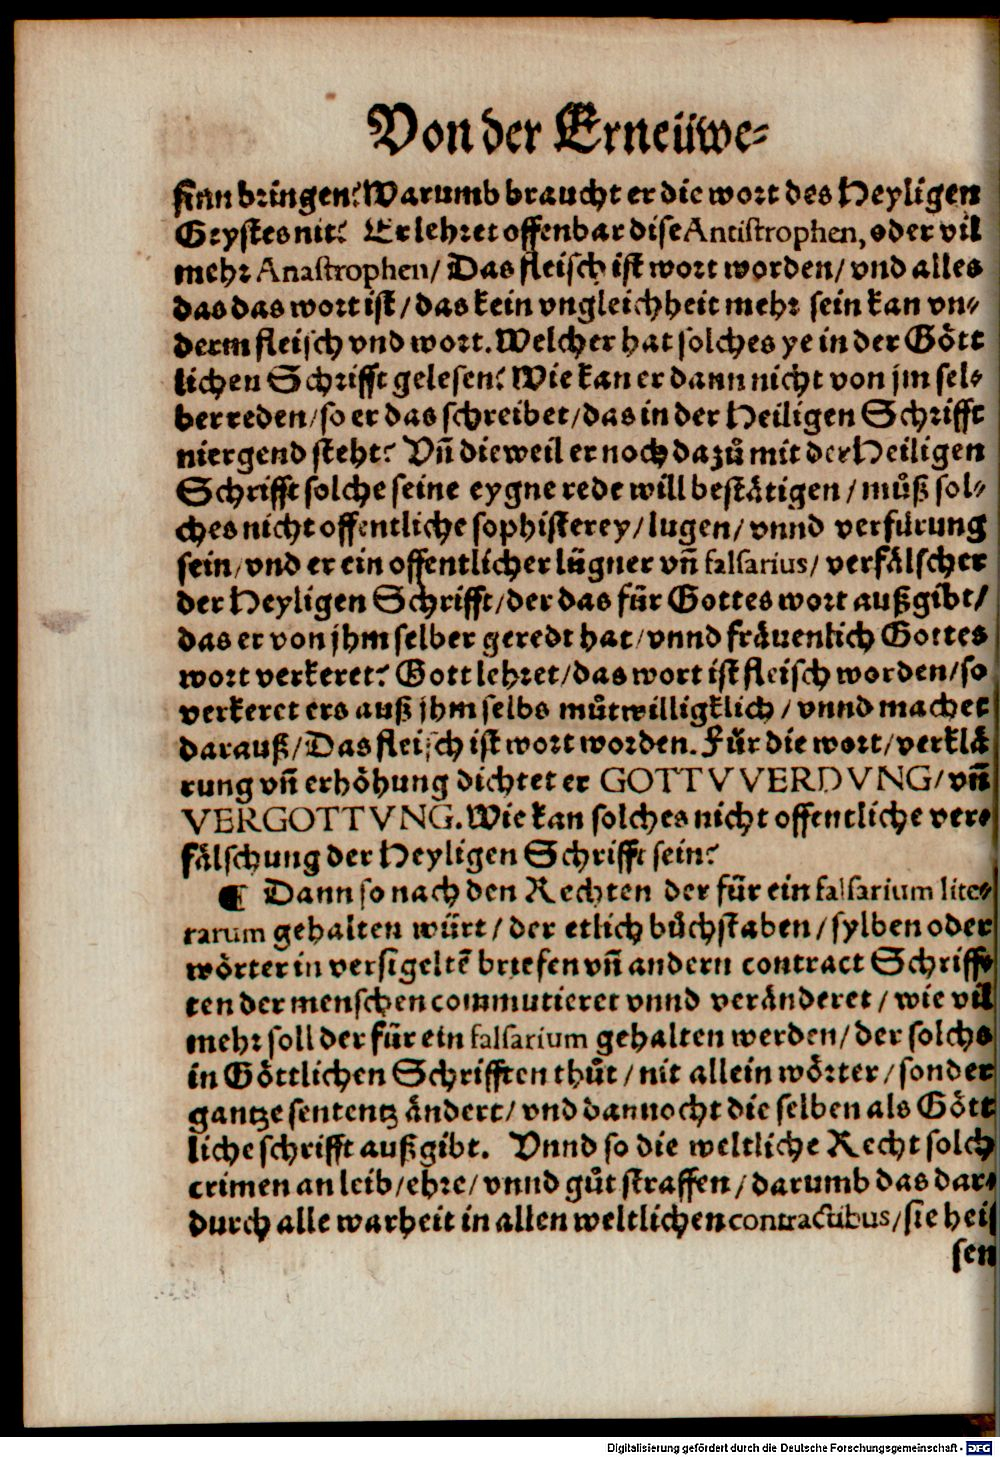 Von der Erneüwe⸗
sinn bringen? Warumb braucht er die wort des Heyligen
Geystes nit? Er lehret offenbar dise Antistrophen, oder vil
mehr Anastrophen/ Das fleisch ist wort worden/ vnd alles
das das wort ist/ das kein vngleichheit mehr sein kan vn⸗
derm fleisch vnd wort. Welcher hat solches ye in der Gött
lichen Schrifft gelesen? Wie kan er dann nicht von jm sel⸗
ber reden/ so er das schreibet/ das in der Heiligen Schrifft
niergend steht? Vñ dieweil er noch dazů mit der Heiligen
Schrifft solche seine eygne rede will bestätigen/ můß sol⸗
ches nicht offentliche sophisterey/ lugen/ vnnd verfürung
sein/ vnd er ein offentlicher lügner vñ falsarius/ verfälscher
der Heyligen Schrifft/ der das für Gottes wort außgibt/
das er von jhm selber geredt hat/ vnnd fräuenlich Gottes
wort verkeret? Gott lehret/ das wort ist fleisch worden/ so
verkeret ers auß jhm selbs můtwilligklich/ vnnd machet
darauß/ Das fleisch ist wort worden. Für die wort/ verklä
rung vñ erhöhung dichtet er GOTTVVERDVNG/ vñ
VERGOTTVNG. Wie kan solches nicht offentliche ver⸗
fälschung der Heyligen Schrifft sein?
¶ Dann so nach den Rechten der für ein falsarium lite⸗
rarum gehalten würt/ der etlich bůchstaben/ sylben oder
wörter in versigeltē briefen vñ andern contract Schriff⸗
ten der menschen commutieret vnnd veränderet/ wie vil
mehr soll der für ein falsarium gehalten werden/ der solchs
in Göttlichen Schrifften thůt/ nit allein wörter/ sonder
gantze sententz ändert/ vnd dannocht die selben als Gött
liche schrifft außgibt. Vnnd so die weltliche Recht solch
crimen an leib/ ehre/ vnnd gůt straffen/ darumb das dar⸗
durch alle warheit in allen weltlichen contractibus/ sie heis
sen
Digitalisierung gefördert durch die Deutsche Forschungsgemeinschaft - DFG